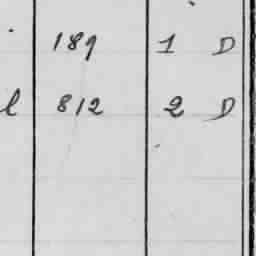 189 1 D
l 812 2 D